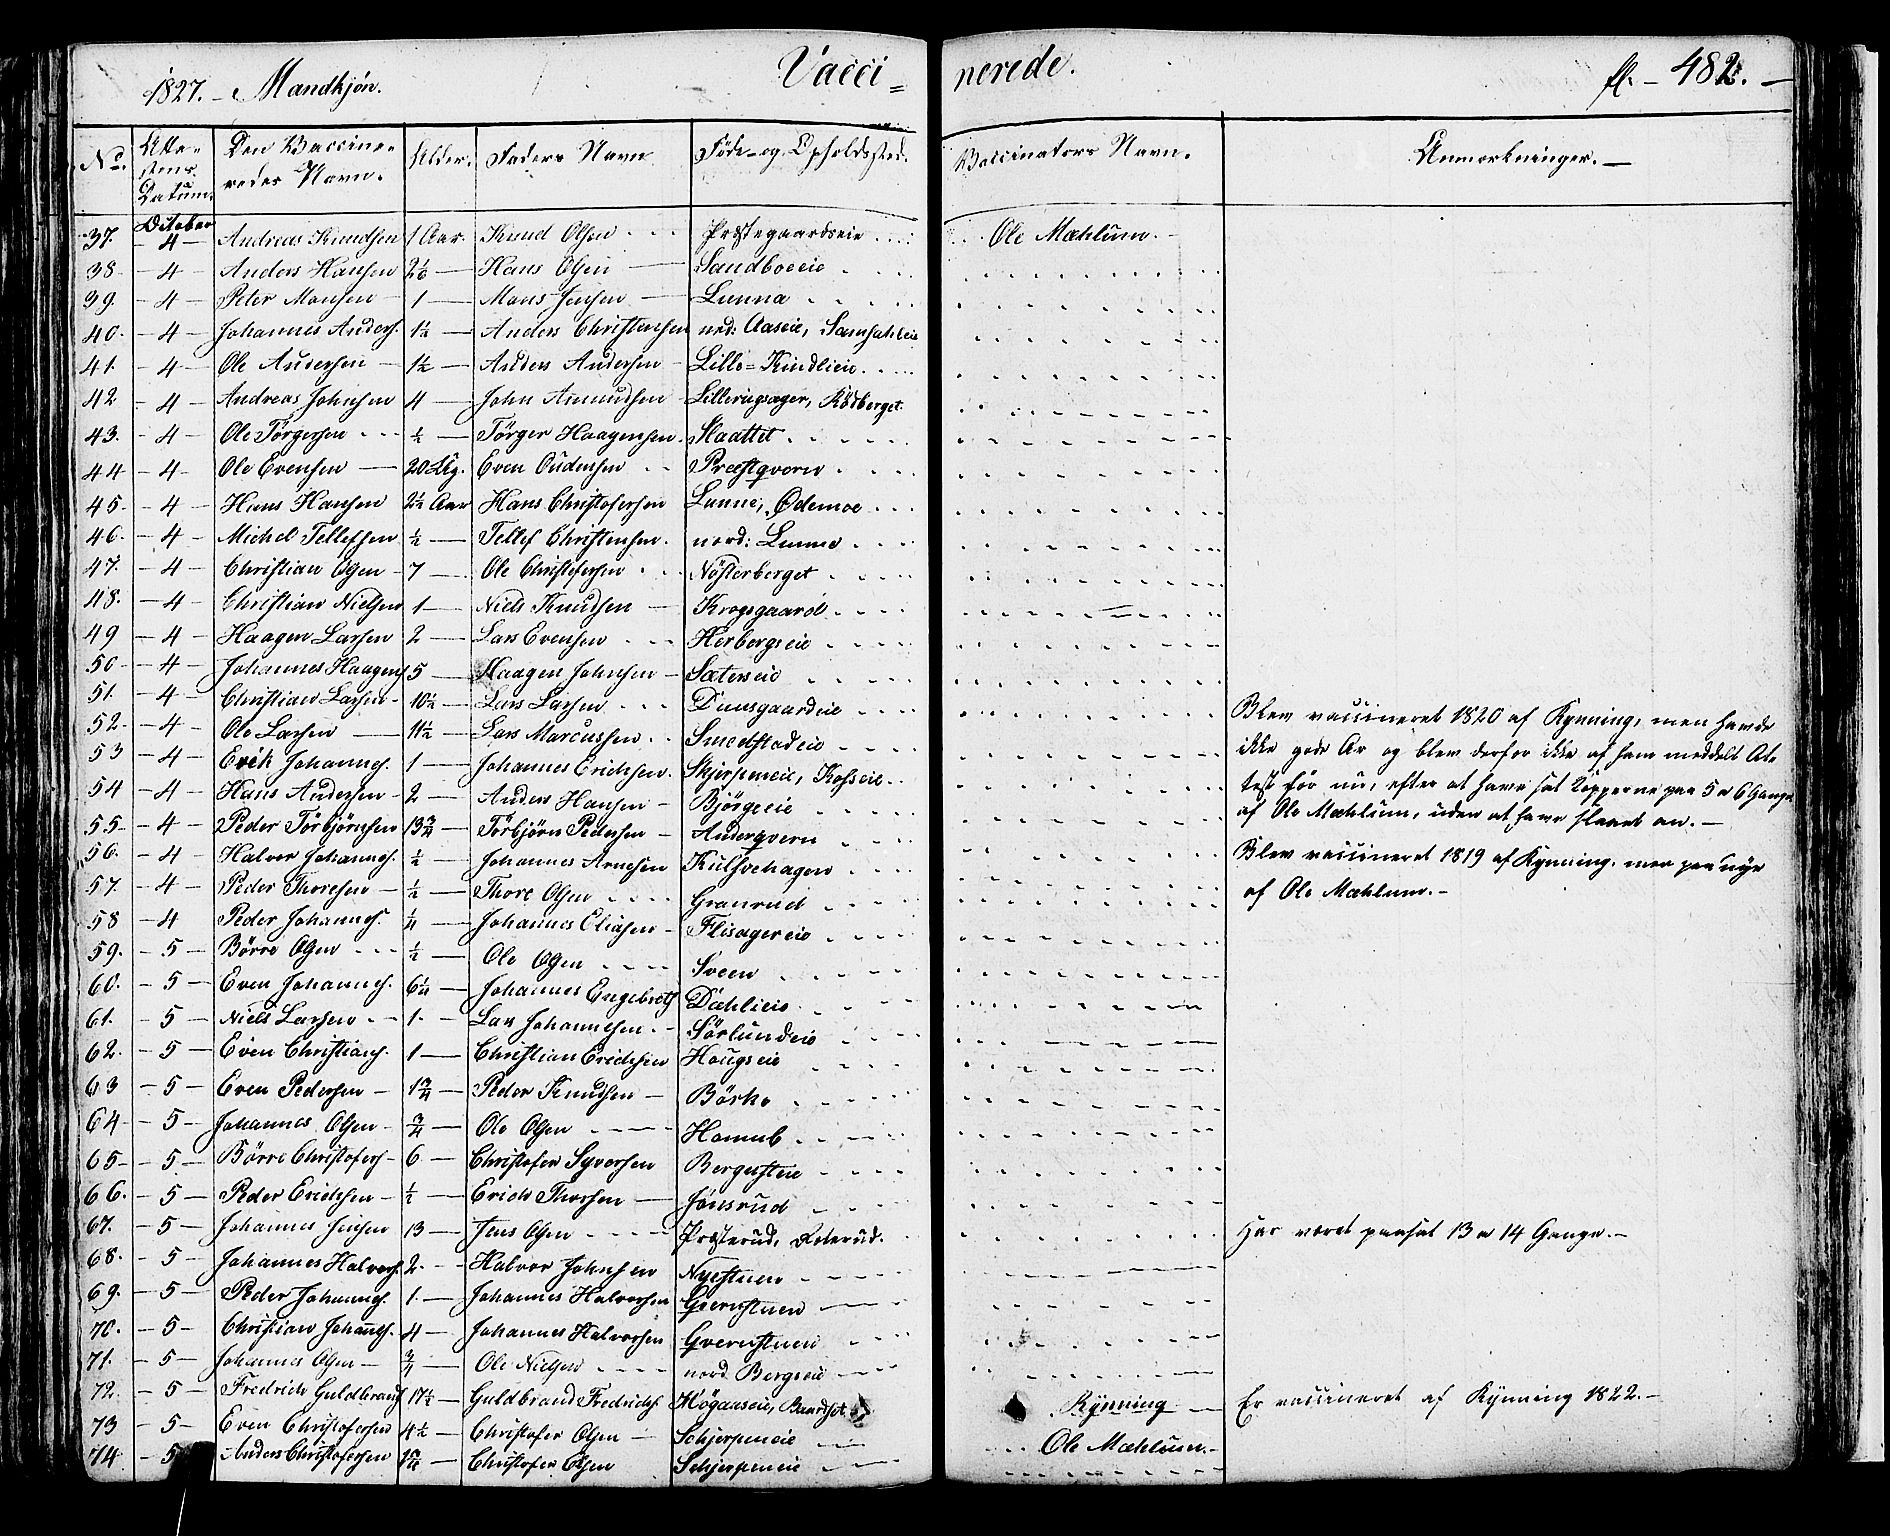 1827. – Mandkjön. Vacci=nerede. fl. – 482. –
No. Atte-stens Datum. Den Vaccine-redes Navn. Alder. Faders Navn Föde- og Opholdssted. Vaccinators Navn. Anmærkninger. –
October
37. – 4 – Andreas Knudsen 1 Aar. Knud Olsen Præstegaardseie Ole Mæhlum. –
38 – 4 – Anders Hansen Hans Olsen Sandboeeie
39. – 4 – Peter Monsen 1 — Mons Jensen Lunna
40. – 4 – Johannes Anders. 1½ — Anders Christensen ned: Aaseie,
41. – 4 – Ole Andersen – 1½ — Anders Andersen – Lille=Kindlieie
42 – 4 – Andreas Johnsen 4 — John Amundsen – Lilleringsager, Rödberget
43. – 4 – Ole Törgersen ½ — Törger Haagensen. Slaattet
44 – 4 – Ole Evensen 20 Ug. Even Oudensen Præstqvern
45 – 4 – Hans Hansen 2½ Aar Hans Christofersen Lunne, Ödemoe
46. – 4 – Michel Tellefsen ½ — Tellef Christensen. nord: Lunne
47. – 4 – Christian Olsen – 7 — Ole Christofersen Nösterberget
48. – 4 – Christian Nielsen 1 — Niels Knudsen — Krogsgaard
49 – 4 – Haagen Larsen 2 — Lars Evensen Herbergseie
50 – 4 – Johannes Haagens 5 — Haagen Johnsen – Sæterseie
51. – 4 – Christian Larsen – 10½ — Lars Larsen Duusgaardeie
52. – 4 – Ole Larsen 11½ — Lars Marcussen Smedstadeie
Blev vaccineret 1820 af Kynning, men havde
ikke gode Ar og blev derfor ikke af ham meddelt At-
test för nu, efter at have sat Kopperne paa 5 a 6 Gange
af Ole Mæhlum, uden at have slaaet an. –
53 – 4 – Erik Johannes. 1 — Johannes Erichsen. Skjerpeneie,
54 – 4 – Hans Andersen – 2 — Anders Hansen – Björgeeie
55 – 4 – Peder Törbjörnsen 13¾ — Törbjörn Pedersen – Anderqvern
Blev vaccineret 1819 af Kynning. men paa nye
af Ole Mæhlum. –
56. – 4 – Halvor Johannes. ½ — Johannes Arnesen Kulsvehagen
57. – 4 – Peder Thoresen – ½ — Thore Olsen Granrud
58 – 4 Peder Johannes. ¼ — Johannes Eliasen – Flisagereie
59. – 5 – Börre Olsen ½ — Ole Olsen Sveen
60. – 5 – Even Johannes. 6¼ — Johannes Engebrets Dæhlieie
61. – 5 – Niels Larsen 1. – Lars Johannesen. Sörlundeie
62. – 5 – Even Christians. 1 — Christian Erichsen Hougseie
63 – 5 – Even Pedersen – 1¾ — Peder Knudsen — Börke
64 – 5 – Johannes Olsen – ¾ — Ole Olsen
65 – 5 – Börre Christofers – 6 — Christofer Syversen Bergersteie
66. – 5 – Peder Erichsen – ½ — Erich Thorsen — Jönsrud
67. – 5 – Johannes Jensen 13 — Jens Olsen Præsterud, Österud. Har været paasat 13 a 14 Gange. –
68. – 5 – Johannes Halvors. 2. – Halvor Johnsen Nyestuen
69. – 5 – Peder Johannes. 1. — Johannes Halvorsen Gvernstuen
70. – 5 – Christian Johannes. 4 — Johannes Halvorsen Gvernstuen
71. – 5 – Johannes Olsen — ¾ — Ole Nielsen nord Bergseie
72. – 5 – Fredrich Guldbrands 17½ — Guldbrand Fredrichs. Högaaseie, Kynning — Er vaccineret af Kynning 1822. –
73 – 5 – Even Christofersen 4½ — Christofer Olsen Schjerpeneie Ole Mæhlum. –
74 – 5 Anders Christofersen Christofer Olsen Schjerpeneie